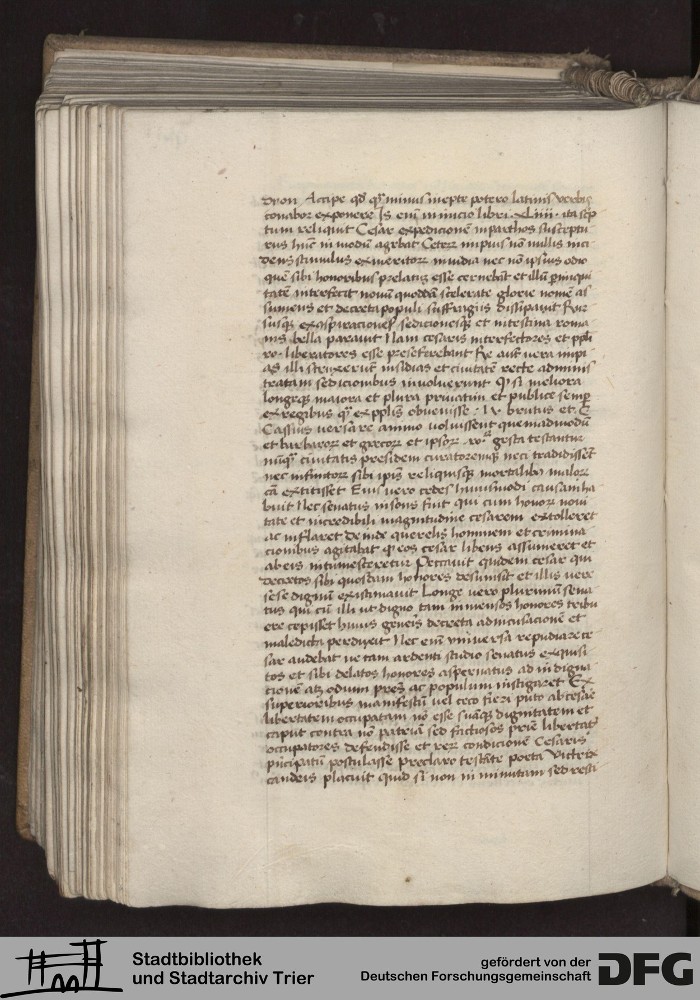 dyon Accipe qd̄ qͫ minus inepte potero latinis verbis
conabor exponere Is eniᷓ in inicio libri XLiiii ita scp̄
tum reliquit Cesar expedicionē in parthos suscepturus
huc̄ in modū agebat Ceterᷓ impius nō nullis inci
dens stimulus ex inveteratoᷓ invidia nec nō ipsius odio
quē sibi honoribus prelatū esse cernebāt et illū
tatē interfecit novū quoddā scelerate glorie nomē as
sumens et decreta populi suffragiis dissipavit
susqꝫ ex conspiracioneᷤ sedicionesqꝫ et intestina roma
nis bella paravit Nam cesaris interfectores et ppli
ro. liberatores esse preseferebant Re aut̄ vera impi
as illi struxerūt insidias et civitatē recte adminis
tratam sedicionibus involverunt Qͥ si meliora
longeqꝫ maiora et plura privatim et publice semp̄
ex regibus qͫ ex pplis obvenisse M. brutus et C.
Cassius versare animo voluissent quemadmodū
et barbaroꝝ et grecoꝝ et ipsoꝝ ro. gesta testantur
nūqͫ civitatis presidem curatoremqꝫ neci tradidissēt
nec infinitoꝝ sibi ipis reliquisqꝫ mortalibꝫ maloꝝ
cā extitisset Eius vero cedes huiusmodi causam ha
buit Nec senatus insons fuit qui cum honoꝝ novi
tate et incredibili magnitudine cesarem extolleret
ac inflaret deinde querelis hominem et crimina
cionibus agitabat qͥ eos cesar libens assumeret et
ab eis intumesceretur Peccavit quidem cesar qui
decretos sibi quosdam honores desumsit et illis vere
sese dignū existimavit Longe vero plurimū sena
tus qui cū illi ut digno tam inmensos honores tribu
ere cepisset huius generis decreta ad incusacionē et
maledicta perduxit Nec enī vniversa repudiare ce
sar audebat ne tam ardenti studio senatus exquisi
tos et sibi delatos honores aspernatus ad indigna
cionē atqꝫ odium pres̄ ac populum instigaret Ex
superioribus manifestū vel ceco fieri puto ab cesare
libertatem occupatam nō esse suāqꝫ dignitatem et
caput contra nō patriā sed factiosos prīe libertatꝭ
occupatores defendisse et reꝝ condicionē Cesaris
pͥncipatū postulasse Preclaro testāte poeta Victrix
causa deis placuit quid si non in mutam sed resti
Stadtbibliothek
und Stadtarchiv Trier
gefördert von der
Deutschen Forschungsgemeinschaft
DFG